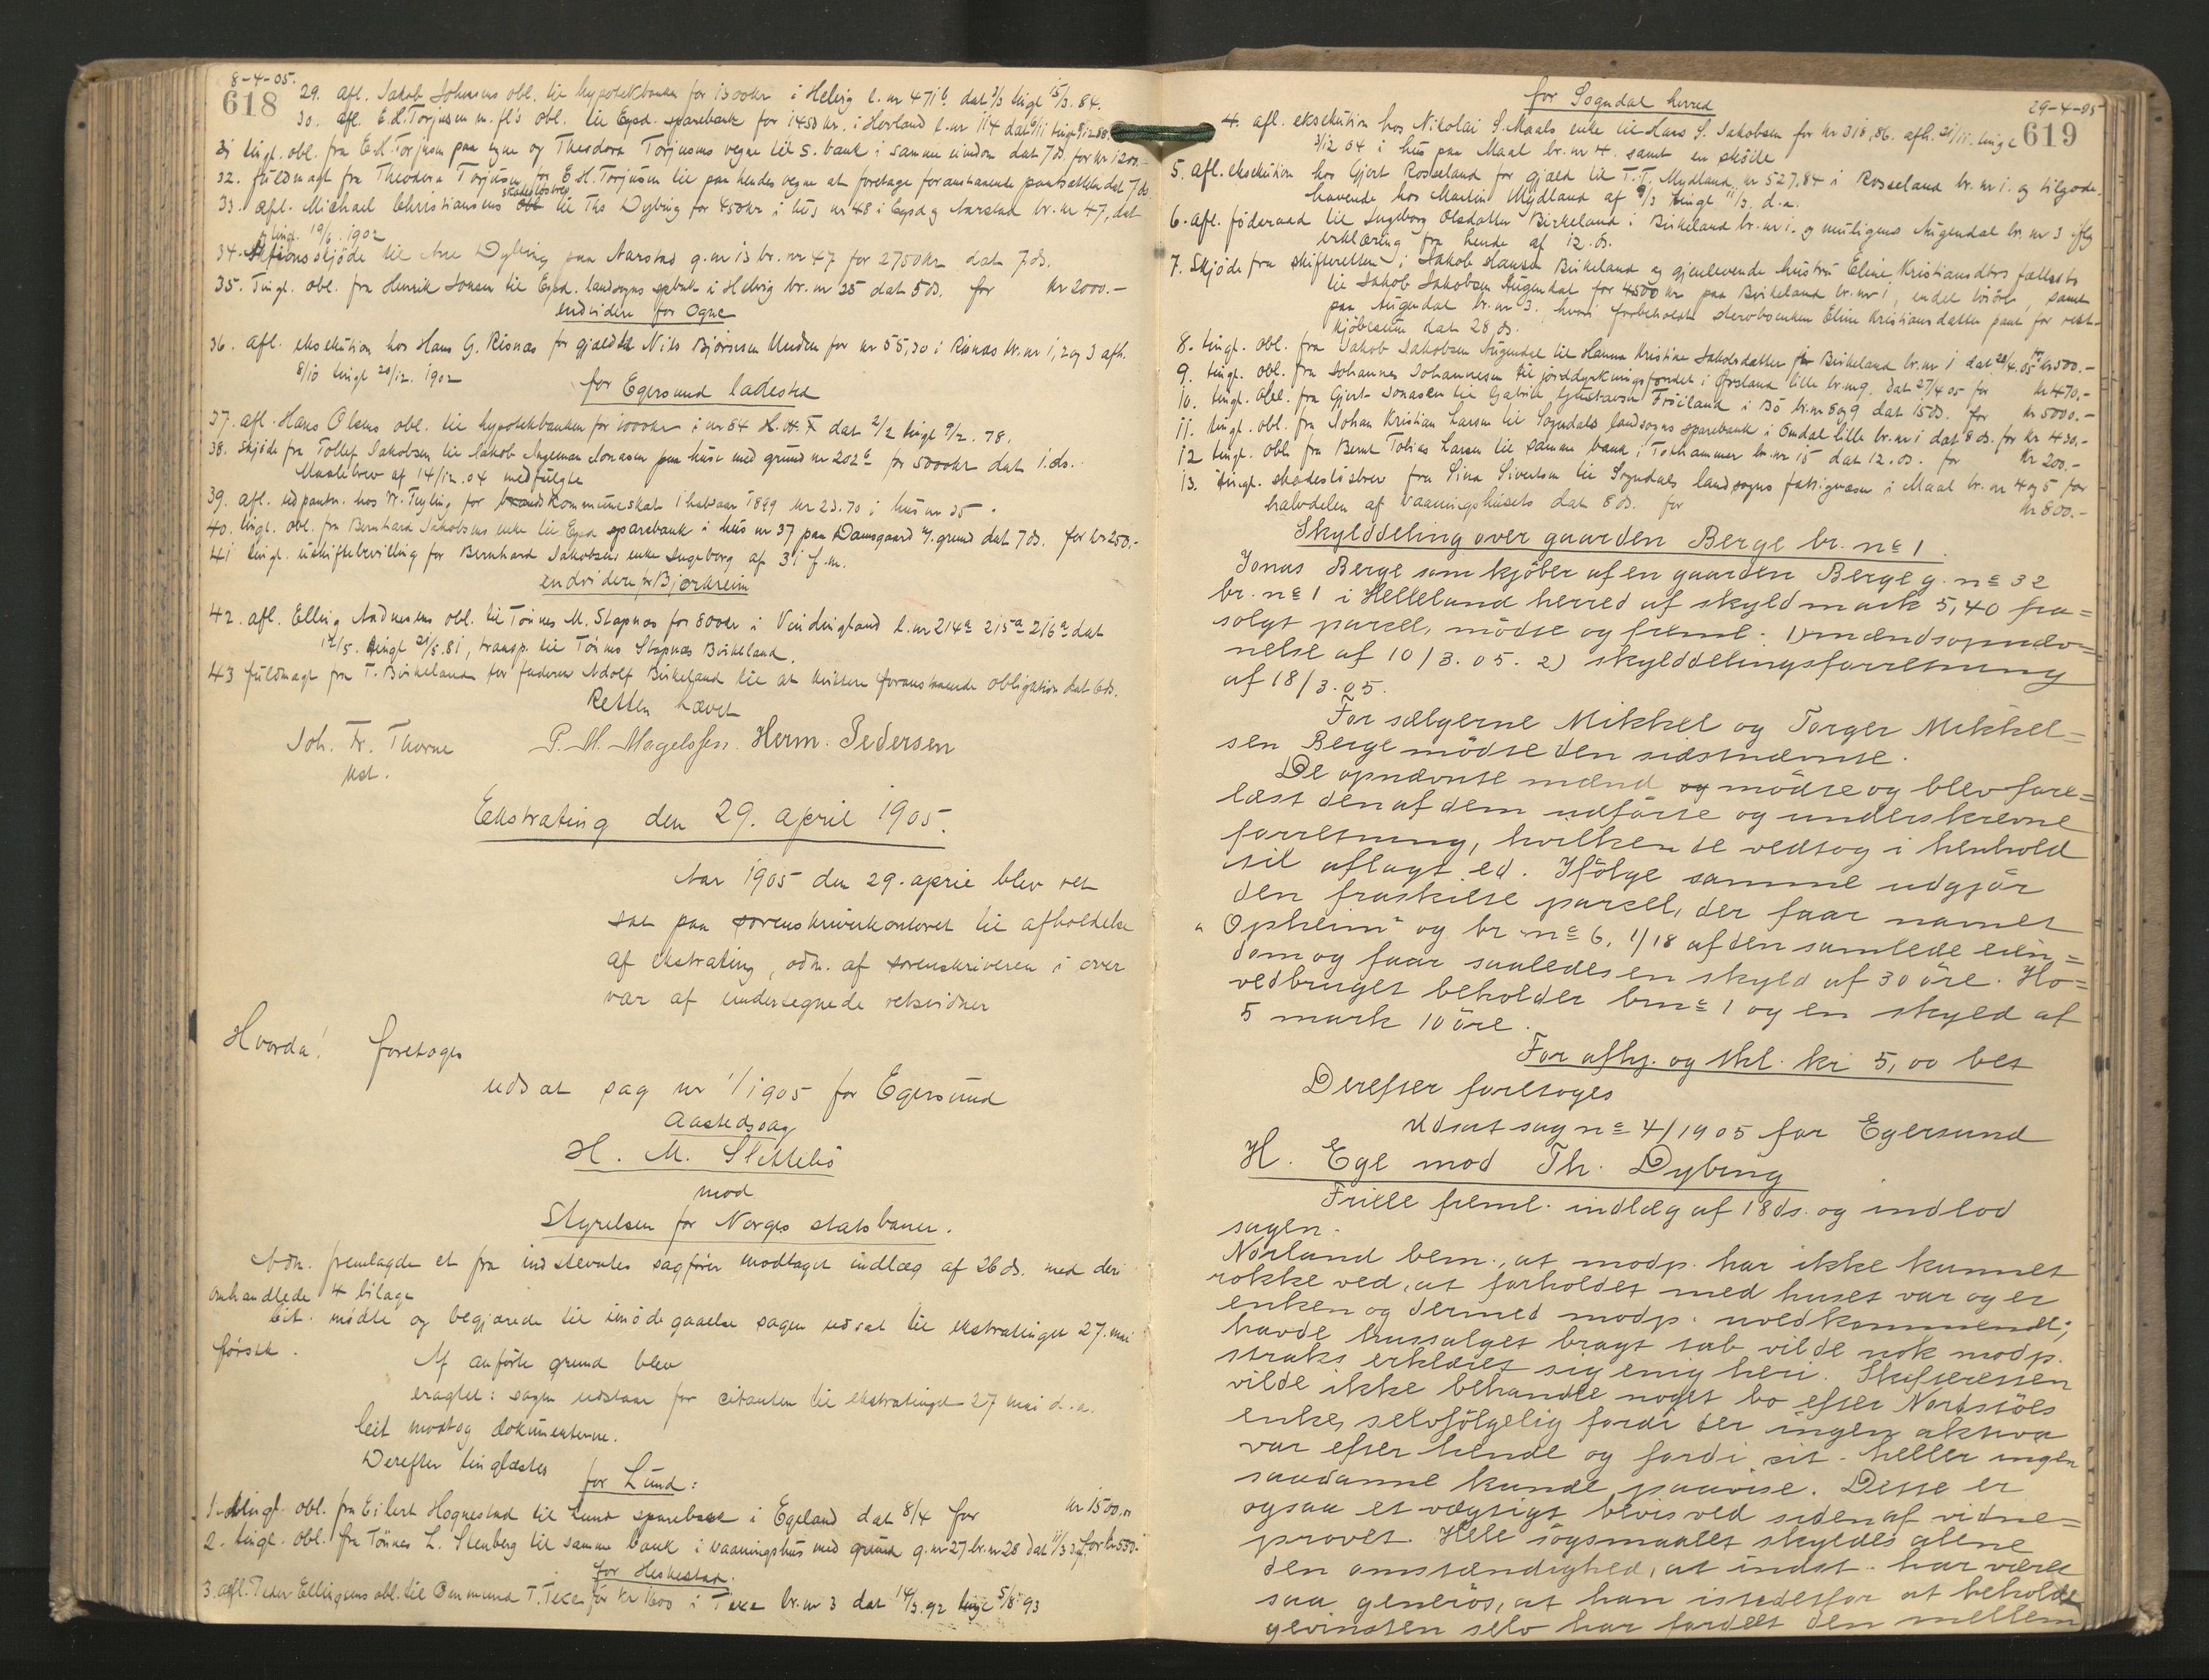 8-4-05.
618
29. afl. Jakob Johnsens obl. til hypotekbanken for 1300kr i Helvig l. nr 471b dat 3/3 tingl 15/3. 84.
30. afl. E. H. Torjusen m. fl's obl. til Egsd. sparebank for 1450 kr. i Hovland l. nr 114
31 tingl. obl. fra E. H. Torjusen paa egne og Theodora Torjusens vegne til s. bank i samme eiendom dat 7 ds. for kr 1200.-
32. fuldmagt fra Theodora Torjusen for E. H. Torjusen til paa hendes vegne at foretage foranstaaende pantsættelse dat 7 ds.
33. afl. Michael Christiansens skadesløsbrev til Ths Dybing for 450kr i hus nr 48 i Egsd og Aarstad br. nr 47, dat
tingl. 19/6. 1902
34. Auktionsskjøde til Ane Dybing paa Aarstad g. nr 13 br. nr 47 for 2750kr dat 7 ds.
35. Tingl. obl. fra Henrik Jonsen til Egsd. landsogns spbank i Helvig br. nr 25 dat 5 ds. for kr 2000.-
endvidere for Ogne
36. afl. eksekution hos Hans G. Risnæs for gjæld til Nils Bjørnsen for kr 55,30 i Risnæs br. nr 1, 2 og 3 afh.
8/10 tingl 20/12. 1902
for Egersund ladested
37. afl. Hans Olsens obl. til hypotekbanken for 1000kr i nr 84 dat 2/2 tingl 9/2. 78.
38. skjøde fra Tollef Jakobsen til Jakob Ingeman Jonasen paa huse med grund nr 202b for 5000kr dat 1. ds.
Maalebrev af 14/12. 04 medfulgte
39. afl. udpantn. hos W. Feyling for kommuneskat 1 halvaar 1899 kr 23.70 i hus nr 35.
40. tingl. obl. fra Bernhard Jakobsens enke til Egsd sparebank i hus nr 37 paa Damsgaard m/. grund dat 7 ds. for kr 250.-
41 tingl. uskiftebevilling for Bernhard Jakobsens enke Ingeborg af 31 f. m.
endvidere for Bjerkreim
42. afl. Elling Aadnesens obl. til Tønnes M. Stapnæs for 800kr i Veidingland l. nr 214a 215a 216a dat
12/5. tingl 21/5. 81, transp. til Tønnes Stapnæs Birkeland.
43 fuldmagt fra T. Birkeland for faderen Adolf Birkeland til at kvittere foranstaaende obligation dat 6 ds.
Retten hævet
Joh. Fr. Thorne P. M. Magelssen. Herm. Pedersen
kst.
Ekstrating den 29. april 1905.
Aar 1905 den 29. april blev ret
sat paa sorenskriverkontoret til afholdelse
af ekstrating, adm. af sorenskriveren i over
vær af undertegnede retsvidner
Hvorda! foretoges
udsat sag nr 1/1905 for Egersund
Aastedssag
H. M. Slettebö
mod
Styrelsen for Norges statsbaner.
Adm. fremlagde et fra indstevntes sagfører modtaget indlæg af 26 ds. med deri
omhandlede 4 bilage
Cit. mødte og begjærede til imödegaaelse sagen udsat til ekstratinget 27. mai
førstk.
Af anførte grund blev
eragtet: sagen udstaar for citanten til ekstratinget 27 mai d. a.
Cit modtog dokumenterne.
Derefter tinglæstes
for Lund:
1. tingl. obl. fra Eilert Hognestad til Lund sparebank i Egeland dat 8/4 for kr 1500,00
2. tingl. obl. fra Tønnes L. Stenberg til samme bank i vaaningshus med grund g. nr 27 br. nr 28 dat 11/3 d.a. for kr 550.-
for Heskestad.
3. afl. Peder Ellingsens obl. til Ommund T. Tekse for kr 1600 i Tekse br. nr 3 dat 14/3. 92 tingl 5/8. 93
29-4-05
619
for Sogndal herred
4. afl. eksekution hos Nikolai S. Maals enke til Hans S. Jakobsen for kr 318,86. afh. 21/11. tingl
3/12 04 i hus paa Maal br. nr 4. samt en skøite
5. afl. eksekution hos Gjert Rosseland for gjæld til T. T. Mydland kr 527.84 i Rosseland br. nr 1. og tilgode-
havende hos Martin Mydland af 9/3 tingl 11/3. d. a.
6. afl. föderaad til Ingeborg Olsdatter Birkeland i Birkeland br. nr 1. og muligens Augendal br. nr 3 iflg
erklæring fra hende af 12. ds.
7. Skjöde fra skifteretten i Jakob Hansen Birkeland og gjenlevende hustru Eline Kristiansdtrs fællesbo
til Jakob Jakobsen Augendal for 4500 kr paa Birkeland br. nr 1, endel lösöre, samt
paa Augendal br. nr 3. hvori forbeholdt sterboenken Eline Kristiansdatter pant for rest-
kjöbesum dat 28 ds.
8. tingl. obl. fra Jakob Jakobsen Augendal til Hanna Kristine Jakobsdatter Birkeland br. nr 1 dat 28/4. 05 for kr 500.-
9. tingl. obl. fra Johannes Johannesen til jorddyrkningsfondet i Örsland lille br. nr 9. dat 27/4 05 for kr 470.-
10. tingl. obl. fra Gjert Jonassen til Gabriel Gustavsen Fröiland i Bö br. nr 8 og 9 dat 15 ds. for kr 5000.-
11. tingl. obl. fra Johan Kristian Larsen til Sogndals landsogns sparebank i Omdal lille br. nr 1 dat 8 ds. for kr 430.-
12 tingl. obl fra Bernt Tobias Larsen til samme bank i Tothammer br. nr 15 dat 12. ds. for kr 200.-
13. tingl. skadeslösbrev fra Sina Sivertsen til Sogndals landsogns fattigvæsen i Maal br. nr 4 og 5 for
halvdelen af vaaningshusets dat 8 ds. for kr 800.-
Skylddeling over gaarden Berge br. no 1.
Jonas Berge som kjöber af en gaarden Berge g. no 32
br. no 1 i Helleland herred af skyld mark 5,40 fra=
solgt parcel, mödte og freml. 1) mændsopnæv=
nelse af 10/3. 05. 2) skylddelingsforretning
af 18/3. 05.
For sælgerne Mikkel og Torger Mikkel=
sen Berge mödte den sidstnævnte.
De opnævnte mænd og mödte og blev fore=
læst den af dem udförte og underskrevne
forretning, hvilken de vedtog i henhold
til aflagt ed. Ifölge samme udgjör
den fraskilte parcel, der faar navnet
„Opheim" og br no 6, 1/18 af den samlede eien=
dom og faar saaledes en skyld af 30 öre. Ho=
vedbruget beholder br no 1 og en skyld af
5 mark 10 öre.
For afhj. og thl. kr 5,00 bet
Derefter foretoges
Udsat sag no 4/1905 for Egersund
H. Ege mod Th. Dybing
Friele freml. indlæg af 18 ds. og indlod
sagen.
Nörland bem., at modp. har ikke kunnet
rokke ved, at forholdet med huset var og er
enken og dermed modp. uvedkommende;
havde hussalget bragt tab vilde nok modp.
straks erklæret sig enig heri. Skifteretten
vilde ikke behandle noget bo efter Nordstöls
enke, selvfölgelig fordi der ingen aktiva
var efter hende og fordi cit. heller ingen
saadanne kunde paavise. Dette er
ogsaa et vægtigt bevis ved siden af vidne=
provet. Hele sögsmaalet skyldes alene
den omstændighed, at indst. har været
saa generös, at han istedetfor at beholde
gevinsten selv har fordelt den mellem